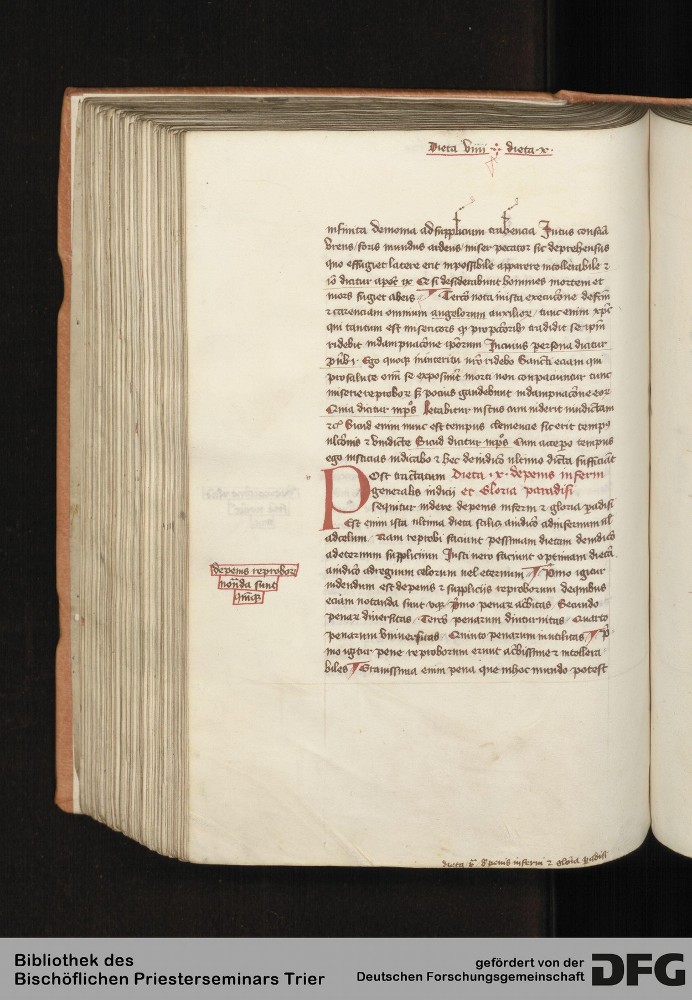 Dieta viiii ∴ dieta ·x·
infinita demonia ad supplicium trahencia Intus consciencia
vrens / foris mundus ardens / miser pecator sic deprehensus
quo effugiet latere erit inpossibile apparere intollerabile et
dicitur apoc ix Et si desiderabunt homines mortem et
mors fugiet ab eis Tercio nota iniusta
et carenciam omnium angelorum auxilior / tunc enim xpc
qui tantum est misericors tradidit se ipm
ridebit in dampnacione ipsorum In cuius persona dicitur
Ego quoque in interitu vro ridebo Sancti eciam qui
pro salute se morti non conpaciuntur tunc
miserie reprobor sed pocius gaudebunt in dampnacione eor
Letabitur iustus cum viderit vindictam
Sicud enim nunc est tempus clemencie sic erit tempus
vlcionis et vindicte Sicud dicitur Cum accepero tempus
ego iusticias iudicabo et hec de iudicio vltimo dicta sufficiant
Post tractatum Dieta ·x· de penis inferni
generalis iudicii et Gloria paradisi
sequitur videre de penis inferni et gloria padisi
Est enim ista vltima dieta scilicet a iudicio ad infernum vel
ad celum / Nam reprobi faciunt pessimam dietam de iudicio
ad eternum supplicium Justi vero faciunt optimam dietam
a iudicio ad regnum celorum vel eternum Primo igitur
videndum est de penis et suppliciis reproborum de quibus
eciam notanda sunt Primo penar acerbitas Secundo
penar diuersitas / Tercio penarum diuturnitas / Quarto
penarum vniuersitas Quinto penarum inutilitas Pri-
mo igitur pene reproborum erunt acerbissime et intollera-
biles Grauissima enim pena que in hoc mundo potest
de penis reprobor
notanda sunt
quinque
dieta x de penis inferni et gloria padisi
Bibliothek des
Bischöflichen Priesterseminars Trier
gefördert von der
Deutschen Forschungsgemeinschaft
DFG